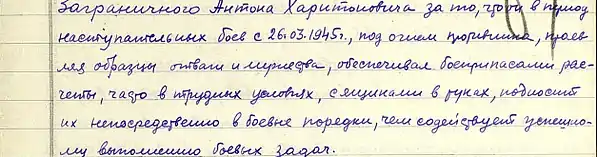 Заграничного Антона Харитоновича за то, что в период
наступательных боев с 26.03.1945г., под огнем противника, прояв-
ляя образцы отваги и мужества, обеспечивал боеприпасами рас-
четы, часто в трудных условиях, с ящиками в руках, подносит
их непосредственно в боевые порядки, чем содействует успешно-
му выполнению боевых задач.